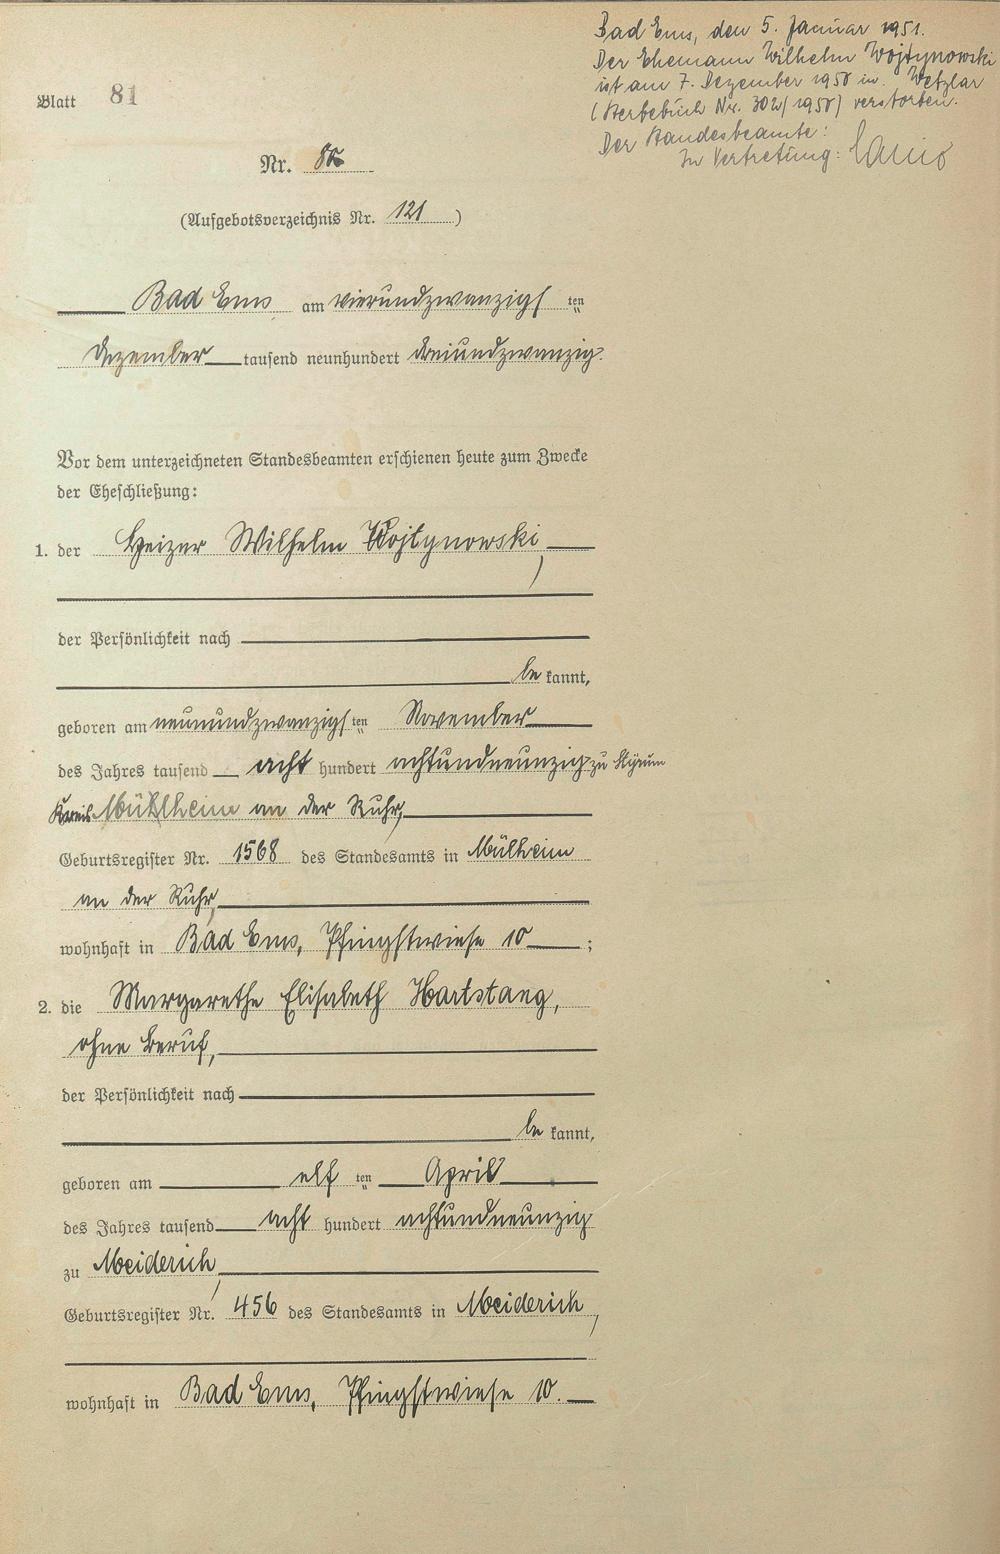 Bad Ems, den 5. Januar 1951.
Der Ehemann Wilhelm Wojtynowski
ist am 7. Dezember 1950 in Wetzlar
(Sterbebuch Nr. 302/1950) verstorben.
Der Standesbeamte:
In Vertretung:
Blatt 81
Nr. 80
(Aufgebotsverzeichnis Nr. 121)
Bad Ems am vierundzwanzigsten
Dezember tausend neunhundert dreiundzwanzig.
Vor dem unterzeichneten Standesbeamten erschienen heute zum Zwecke
der Eheschließung:
1. der Heizer Wilhelm Wojtynowski,
der Persönlichkeit nach
be kannt,
geboren am neunundzwanzigsten November
des Jahres tausend acht hundert achtundneunzig zu Styrum
Kreis Mühlheim an der Ruhr,
Geburtsregister Nr. 1568 des Standesamts in Mülheim
an der Ruhr,
wohnhaft in Bad Ems, Pfingstwiese 10 ;
2. die Margarethe Elisabeth Hartstang,
ohne Beruf,
der Persönlichkeit nach
be kannt,
geboren am elf ten April
des Jahres tausend acht hundert achtundneunzig
zu Meiderich,
Geburtsregister Nr. 456 des Standesamts in Meiderich,
wohnhaft in Bad Ems, Pfingstwiese 10.